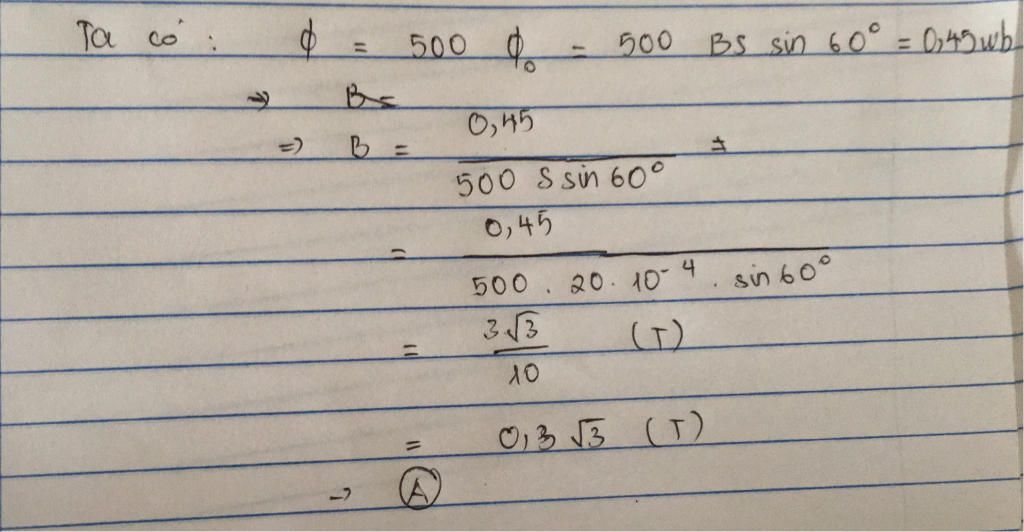 Ta có : ϕ = 500 ϕ₀ = 500 BS sin 60° = 0,45wb
⇒ B=
⇒ B = 0,45 / 500 S sin 60° =
= 0,45 / 500 . 20 . 10⁻⁴ . sin 60°
= 3√3 / 10 (T)
= 0,3 √3 (T)
→ Ⓐ